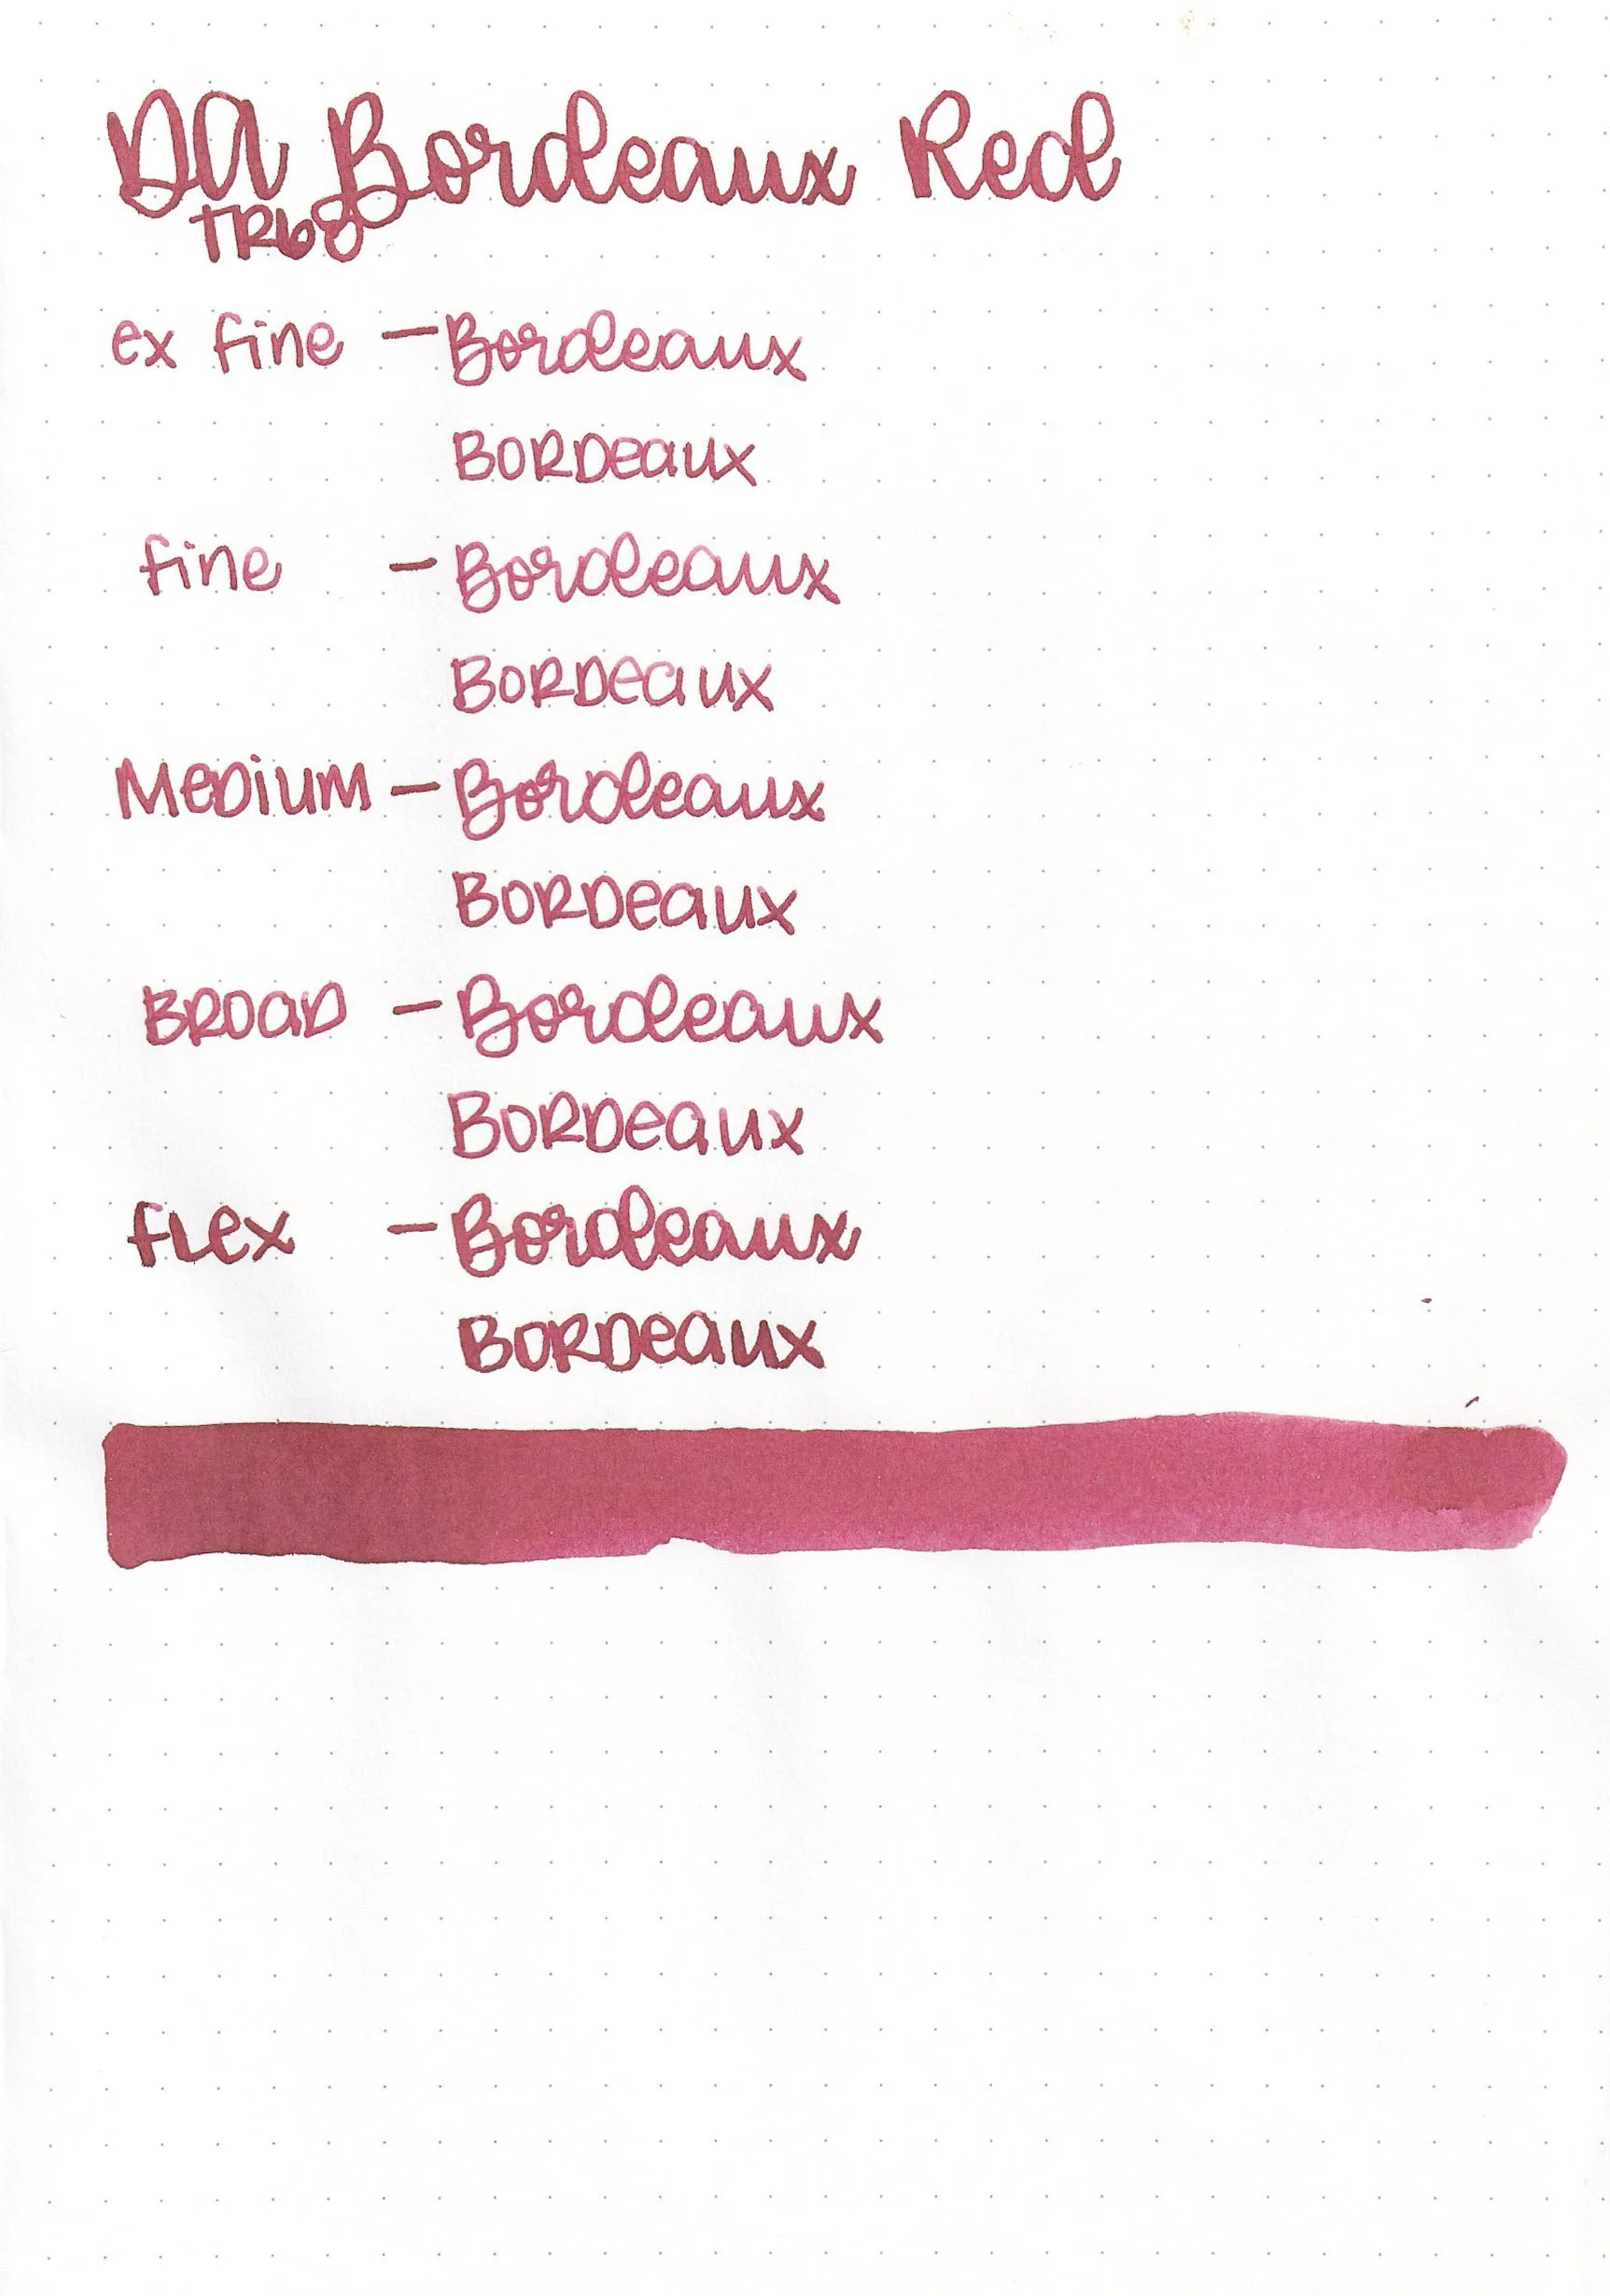 DA Bordeaux Red
TR68
ex fine - Bordeaux
BORDeaux
fine - Bordeaux
BORDeaux
MeDium - Bordeaux
BORDeaux
BROaD - Bordeaux
BORDeaux
fLex - Bordeaux
BORDeaux